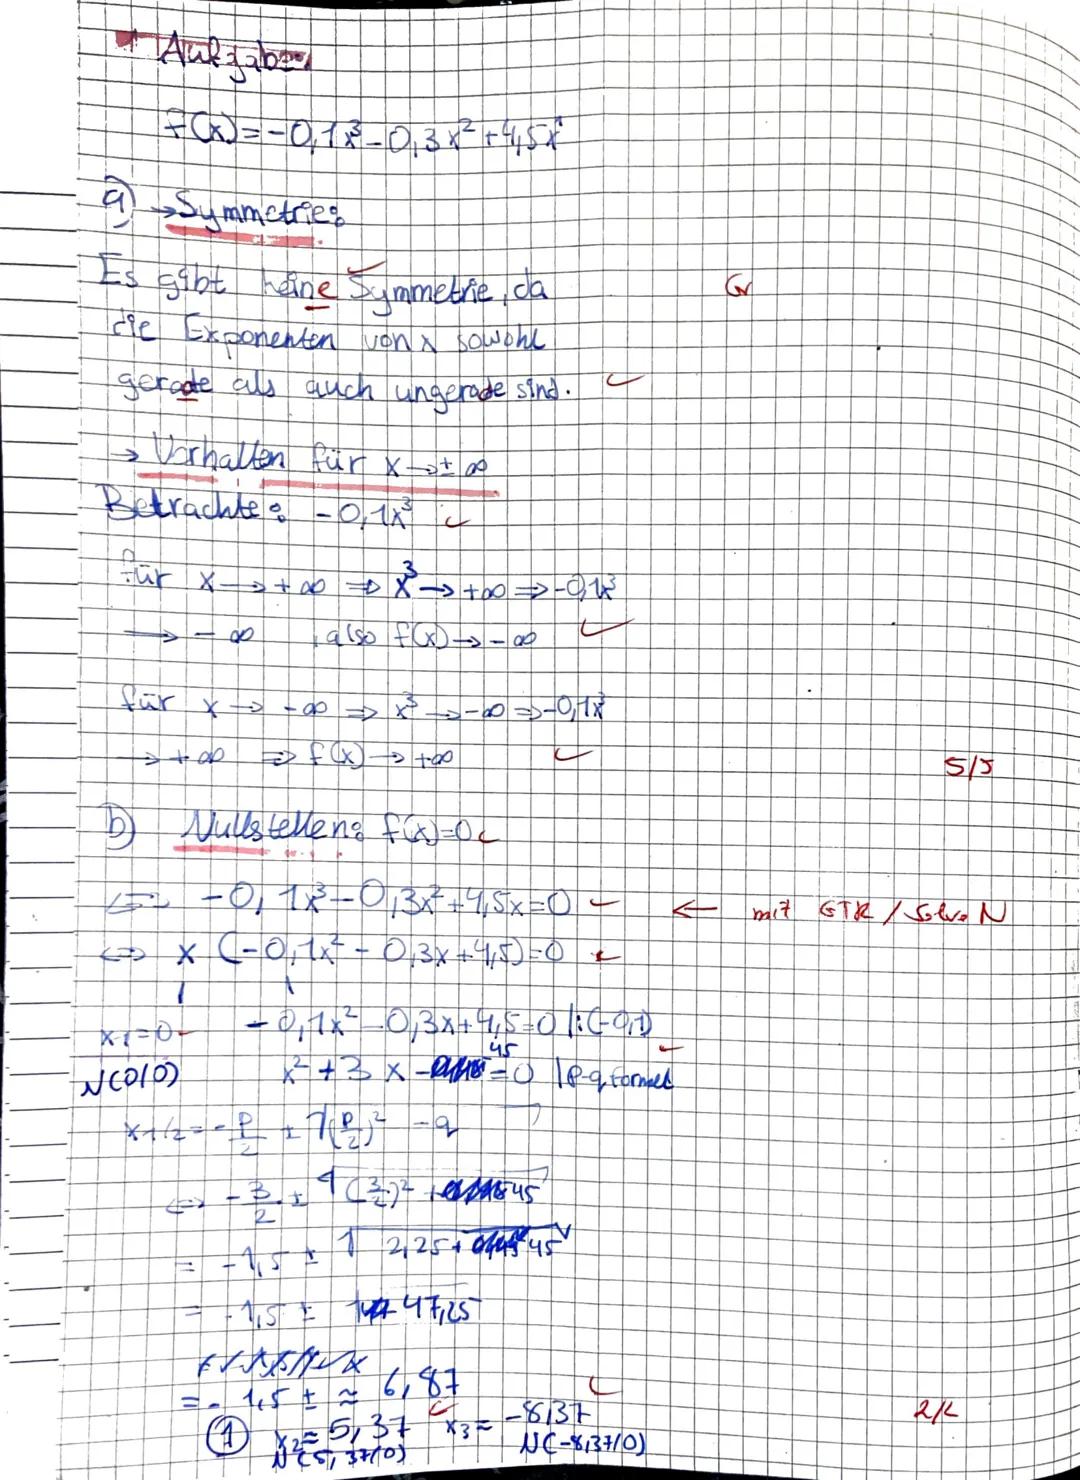 Aufgaben
f(x)=-0,1x³-0,3x²+4,5x¹
a) →Symmetrie:
Es gibt keine Symmetrie, da Gr
die Exponenten von x sowohl
gerade als auch ungerade sind. ✓
→ Verhalten für x→±∞
Betrachte: -0,1x³ ✓
für x→+∞ ⇒ x³→+∞ ⇒ -0,1x³
→ -∞ , also f(x)→-∞ ✓
für x→ -∞ ⇒ x³→-∞ ⇒ -0,1x³
→+∞ ⇒ f(x)→+∞ ✓
5/5
b) Nullstellen: f(x)=0 ✓
⇔ -0,1x³-0,3x²+4,5x=0 ← mit GTR / SolveN
⇔ x (-0,1x²-0,3x+4,5)=0 ✓
x1=0 -0,1x²-0,3x+4,5=0 |:(-0,1) ✓
N(0|0) x²+3x-45=0 |p-q formel
x1/2=-p/2 ± √(p/2)²-q
⇔ -3/2 ± √(3/2)²+45
= -1,5 ± √2,25+45
= -1,5 ± √47,25
= -1,5 ± ≈ 6,87 ✓
① x2=5,37 x3= -8,37 2/2
N(5,37|0) N(-8,37|0)